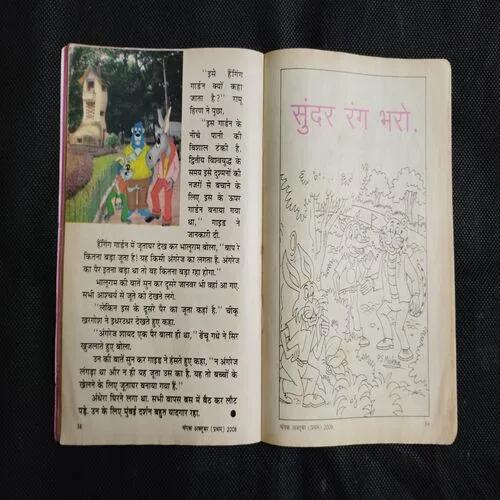 "इसे हैंगिंग
गार्डन क्यों कहा
जाता है?" रामू
हिरण ने पूछा.
"इस गार्डन के
नीचे पानी की
विशाल टंकी है.
द्वितीय विश्वयुद्ध के
समय इसे दुश्मनों की
नजरों से बचाने के
लिए इस के ऊपर
गार्डन बनाया गया
था," गाइड ने
जानकारी दी.
हैंगिंग गार्डन में जूताघर देख कर भालूराम बोला, "बाप रे
कितना बड़ा जूता है! यह किसी अंगरेज का लगता है. अंगरेज
का पैर इतना बड़ा था तो वह कितना बड़ा रहा होगा."
भालूराम की बातें सुन कर दूसरे जानवर भी वहां आ गए.
सभी आश्चर्य से जूते को देखने लगे.
"लेकिन इस के दूसरे पैर का जूता कहां है." चीकू
खरगोश ने इधरउधर देखते हुए कहा.
"अंगरेज शायद एक पैर वाला ही था," ढेंचू गधे ने सिर
खुजलाते हुए बोला.
उन की बातें सुन कर गाइड ने हंसते हुए कहा, "न अंगरेज
लंगड़ा था और न ही यह जूता उस का है. यह तो बच्चों के
खेलने के लिए जूताघर बनाया गया है."
अंधेरा घिरने लगा था. सभी वापस बस में बैठ कर लौट
पड़े. उन के लिए मुंबई दर्शन बहुत यादगार रहा.
चंपक अक्टूबर (प्रथम) 2009
सुंदर रंग भरो.
चंपक अक्टूबर (प्रथम) 2009